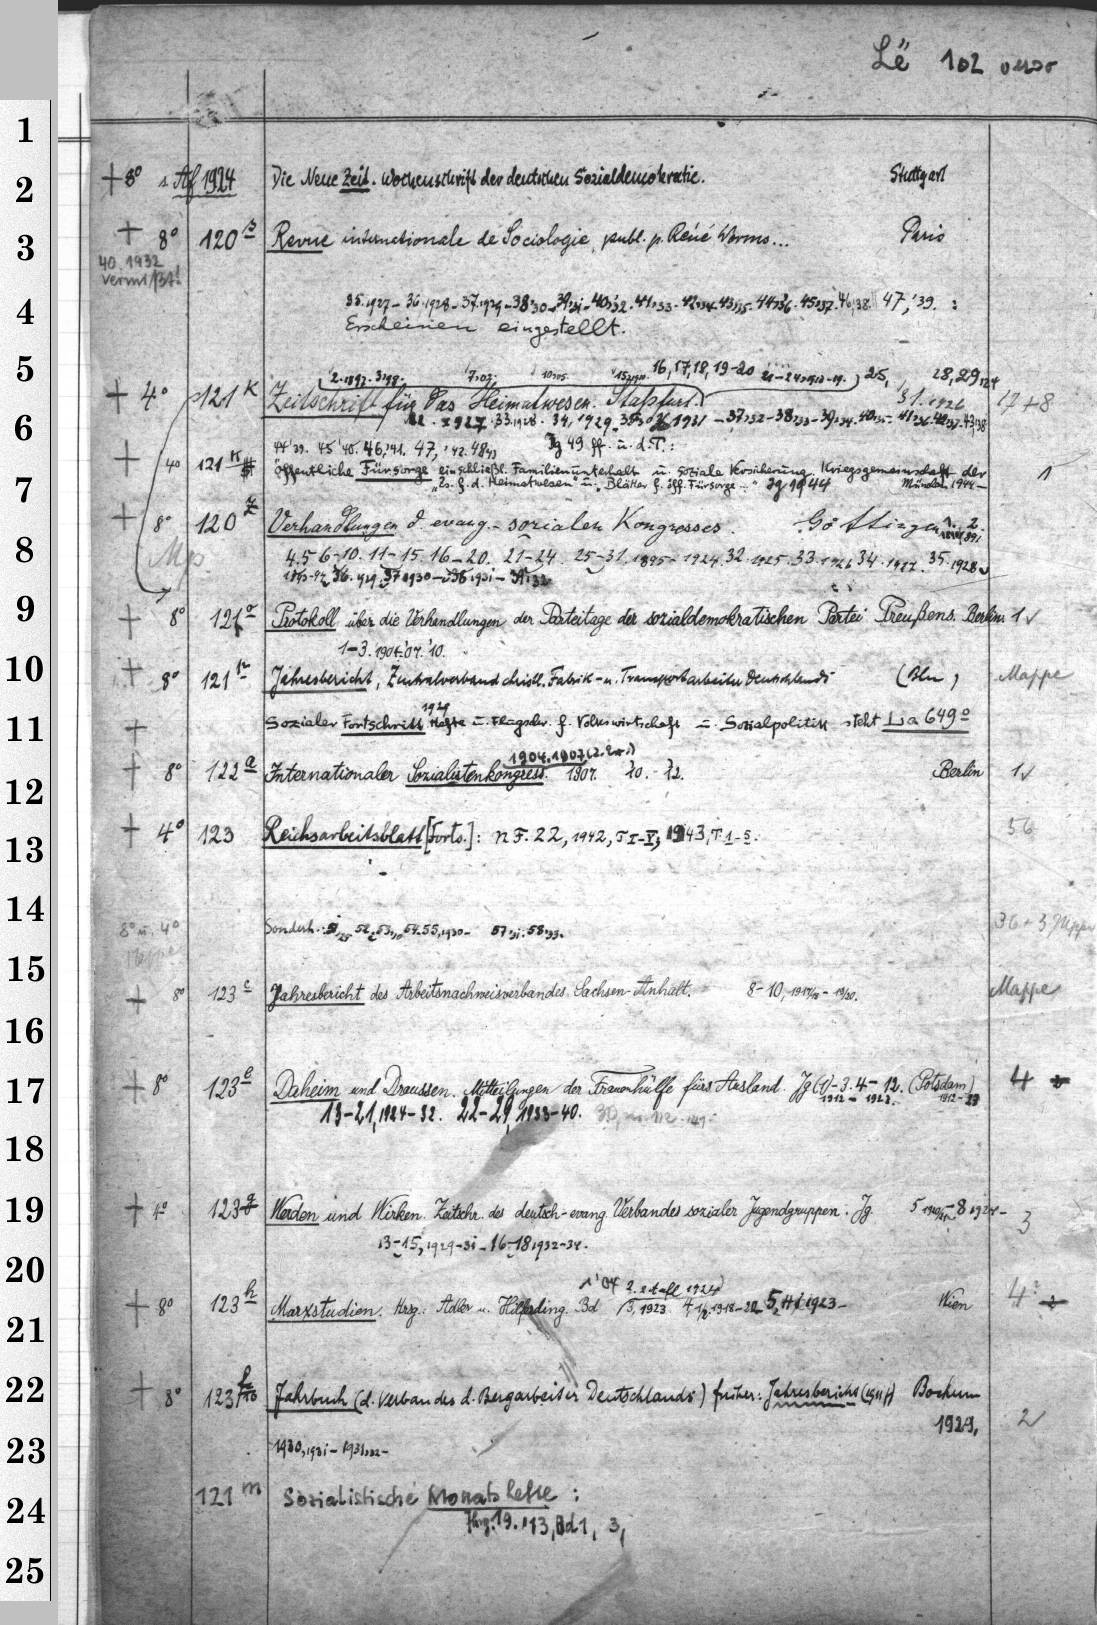 Lë 102 verso
1
2 + 8° s. Af 1924 Die Neue Zeit. Wochenschrift der deutschen Sozialdemokratie. Stuttgart
3 + 8° 120 s Revue internationale de Sociologie, publ. p. René Worms... Paris
40. 1932
vermißt!
4 35.1927 - 36.1928 - 37.1929 - 38.30 - 39.31 - 40.32 - 41.33 - 42.34 - 43.35 - 44.36 - 45.37 - 46.38. 47,'39. :
Erscheinen eingestellt.
5 2.1897. 3.98. 7.02, 10.05. 16, 17, 18, 19-20 21-24 25, 28, 29
+ 4° 121 k Zeitschrift für das Heimatwesen. Stassfurt. 31. 1926 17+8
6 1927. 33.1928. 34, 1929. 1931 - 37.32 - 38.33 - 39.34. 40.35 - 41.36. 42.37. 43.38
44'39. 45'40. 46,'41. 47,'42. 48,43 Jg 49 ff. u. d. T.:
4° 121 k öffentliche Fürsorge einschließl. Familienunterhalt u. soziale Versicherung, Kriegsgemeinschaft der 1
7 „Zs. f. d. Heimatwesen" u. „Blätter f. öff. Fürsorge" Jg 1944 München 1944 -
+ 8° 120 z Verhandlungen d. evang.-sozialen Kongresses. Göttingen 1. 2.
8 Mp. 4.5 6-10. 11-15. 16-20. 21-24. 25-31. 1895-1924. 32. 1925. 33. 1926 34. 1927. 35. 1928
36. 1929. 37 1930 - 38 1931 - 39.32
9 + 8° 121 Protokoll über die Verhandlungen der Parteitage der sozialdemokratischen Partei Preußens. Berlin. 1
1-3. 1904.'07.'10.
10 + 8° 121 Jahresbericht, Zentralverband christl. Fabrik- u. Transportarbeiter Deutschlands (Bln, Mappe
1929
11 + Sozialer Fortschritt Hefte u. Flugschr. f. Volkswirtschaft u. Sozialpolitik steht La 649°
1904. 1907 (2. Ex.)
12 + 8° 122 a Internationaler Sozialistenkongress. 1907. 10. - 12. Berlin 1
13 + 4° 123 Reichsarbeitsblatt [Forts.]: N.F. 22, 1942, T I-V, 1943, T. 1-5. 56
14 8° u. 4° Sonderh.: 57.31. 58.33. 36 + 3 Mappe
15
+ 8° 123 c Jahresbericht des Arbeitsnachweisverbandes Sachsen-Anhalt. 8-10, 1917/18 - 19/20. Mappe
16
17 + 8° 123 e Daheim und Draussen. Mitteilungen der Frauenhülfe fürs Ausland. Jg (1)-3. 4-12. (Potsdam) 4
1912 - 1923. 1912-23
13-21, 1924-32. 22-29, 1933-40. 30,
18
19 + 4° 123 g Werden und Wirken. Zeitschr. des deutsch-evang. Verbandes sozialer Jugendgruppen. Jg. 5 - 8 1924 - 3
13-15, 1929-31 - 16-18 1932-34.
20
1'04 2. 1924
+ 8° 123 h Marxstudien. Hrsg.: Adler u. Hilferding. Bd 3, 1923 4, 1/2. 1918-22 5, 1923 - Wien 4
21
22 + 8° 123 Jahrbuch (d. Verbandes d. Bergarbeiter Deutschlands) früher: Jahresbericht Bochum
1929, 2
23 1930, 1931 - 1931/32 -
24 121 m Sozialistische Monatshefte :
Jhrg. 19. '13, Bd 1, 3,
25